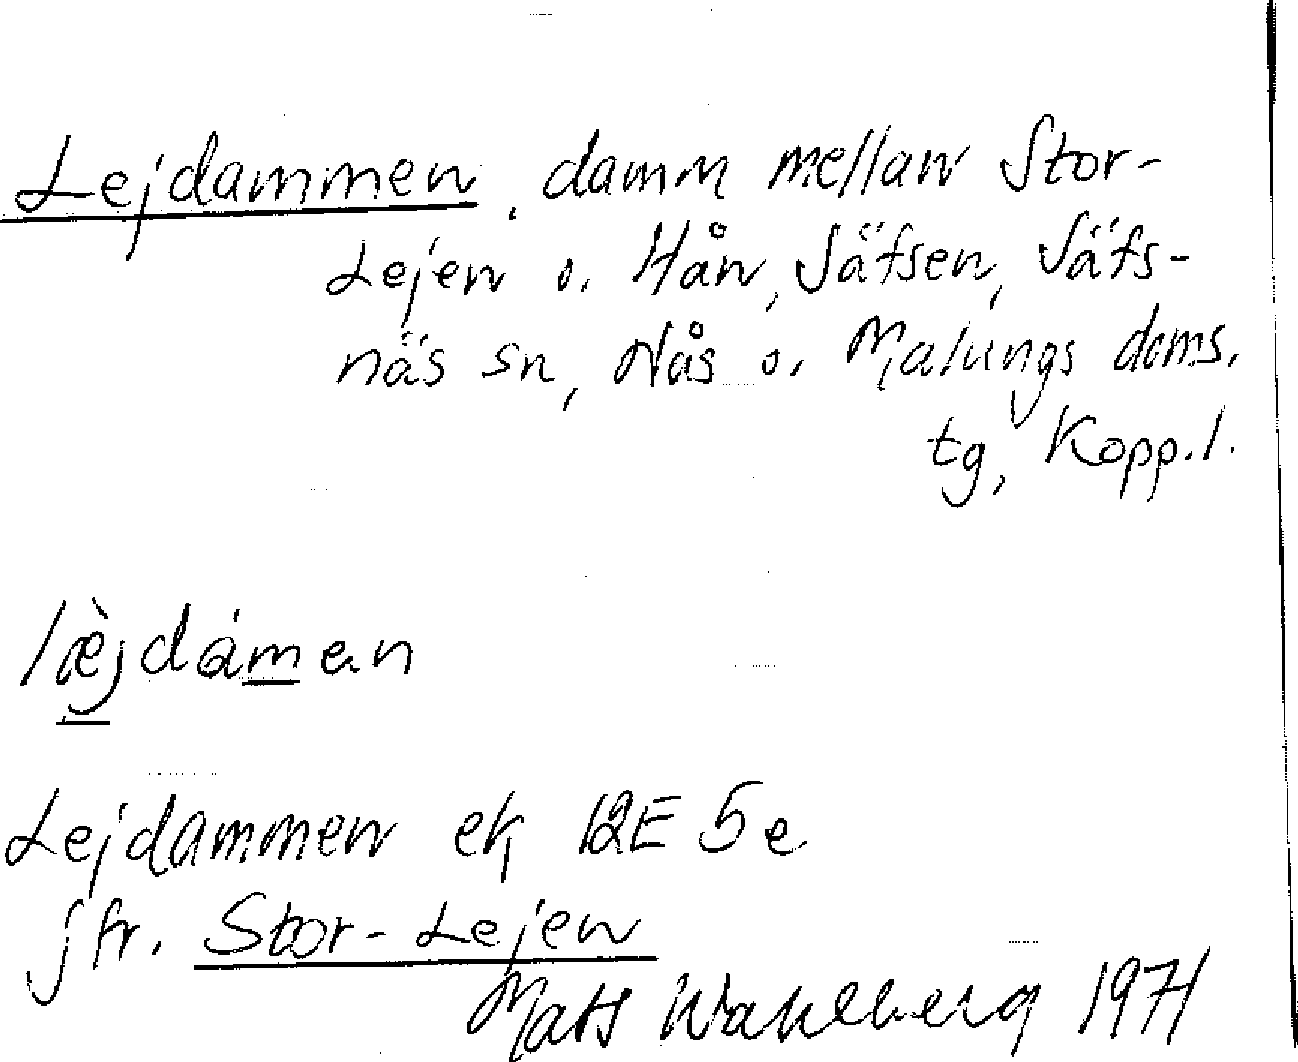 Lejdammen, damm mellan Stor-
Lejen o. Hån, Säfsen, Säfs-
näs sn, Nås o. Malungs doms.
tg, Kopp.l.
læ̀jdámen
Lejdammen ek 12E 5e
jfr. Stor-Lejen
Mats Wahlberg 1971